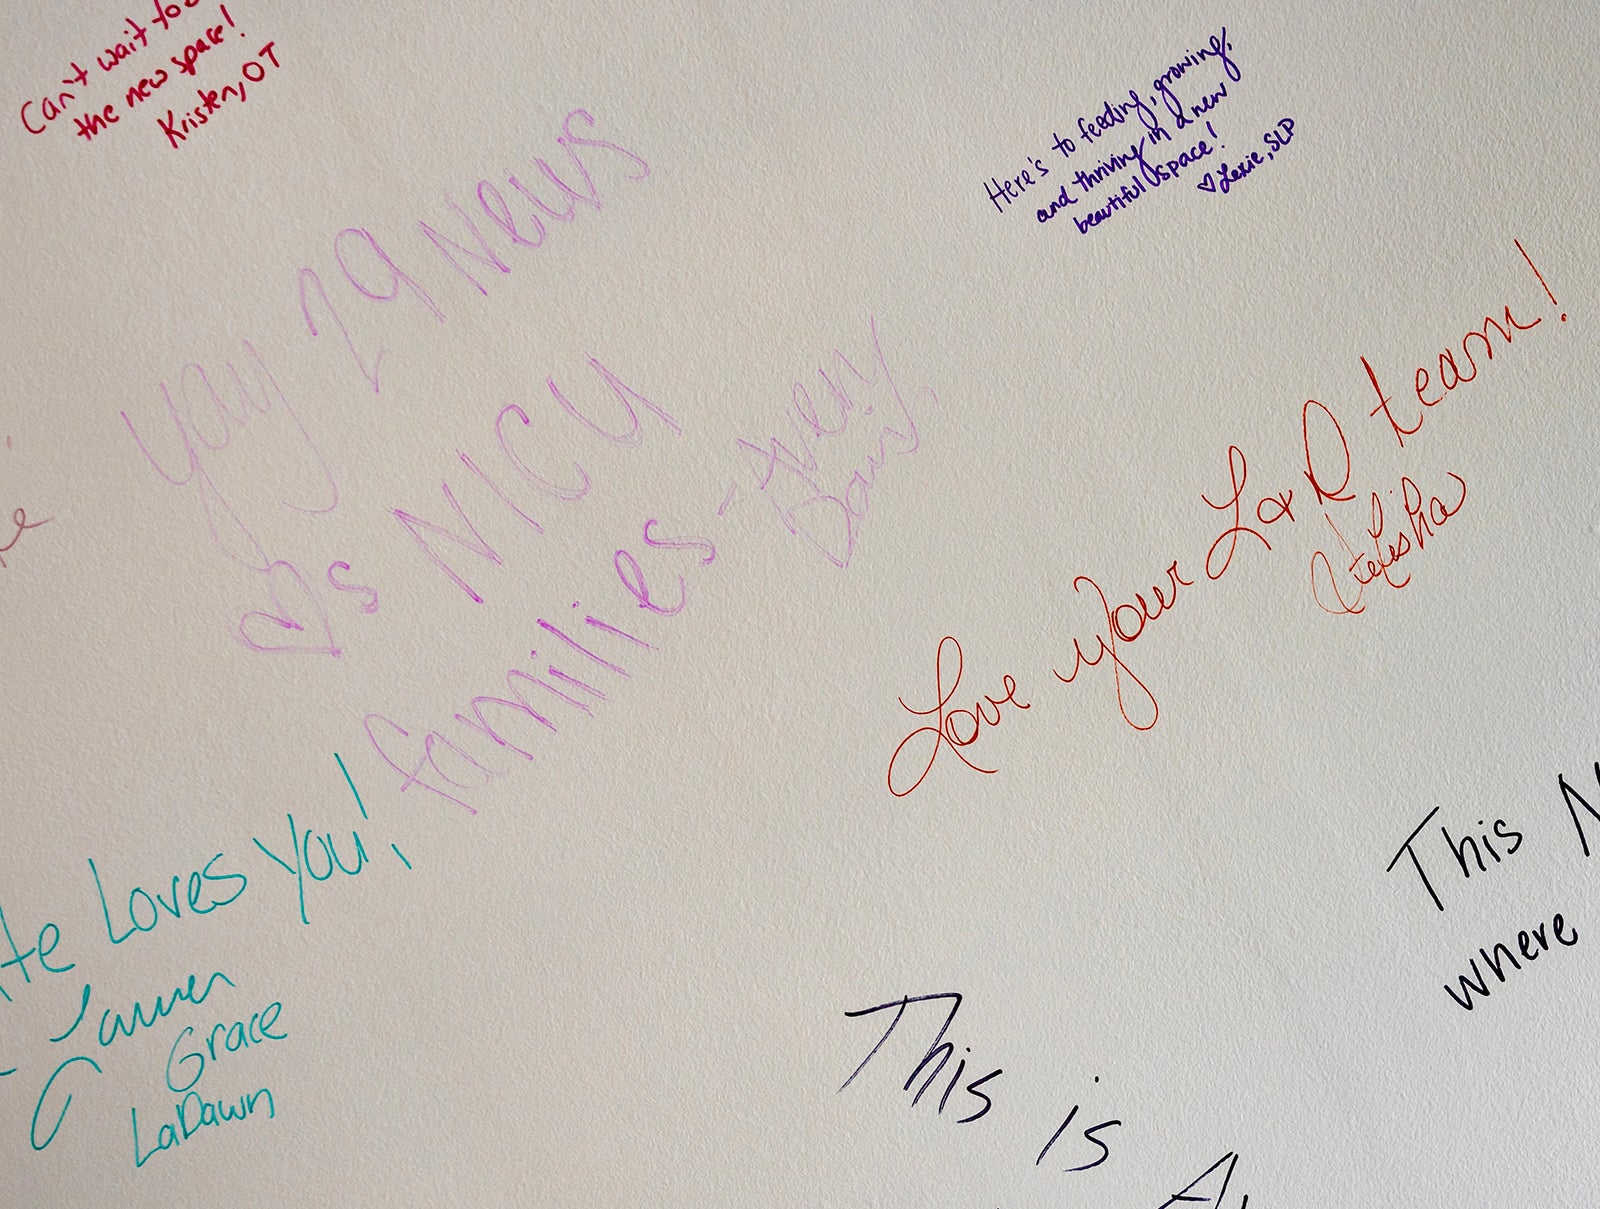 Can't wait to
the new space!
Kristen, OT
Here's to feeding, growing,
and thriving in a new
beautiful space!
♡ Lexie, SLP
Yay 29 News
♡s NICU
families - Avery
Davis
Love your L&D team!
te Loves You!
Lauren
Grace
LaDawn
This N
where
This is
A